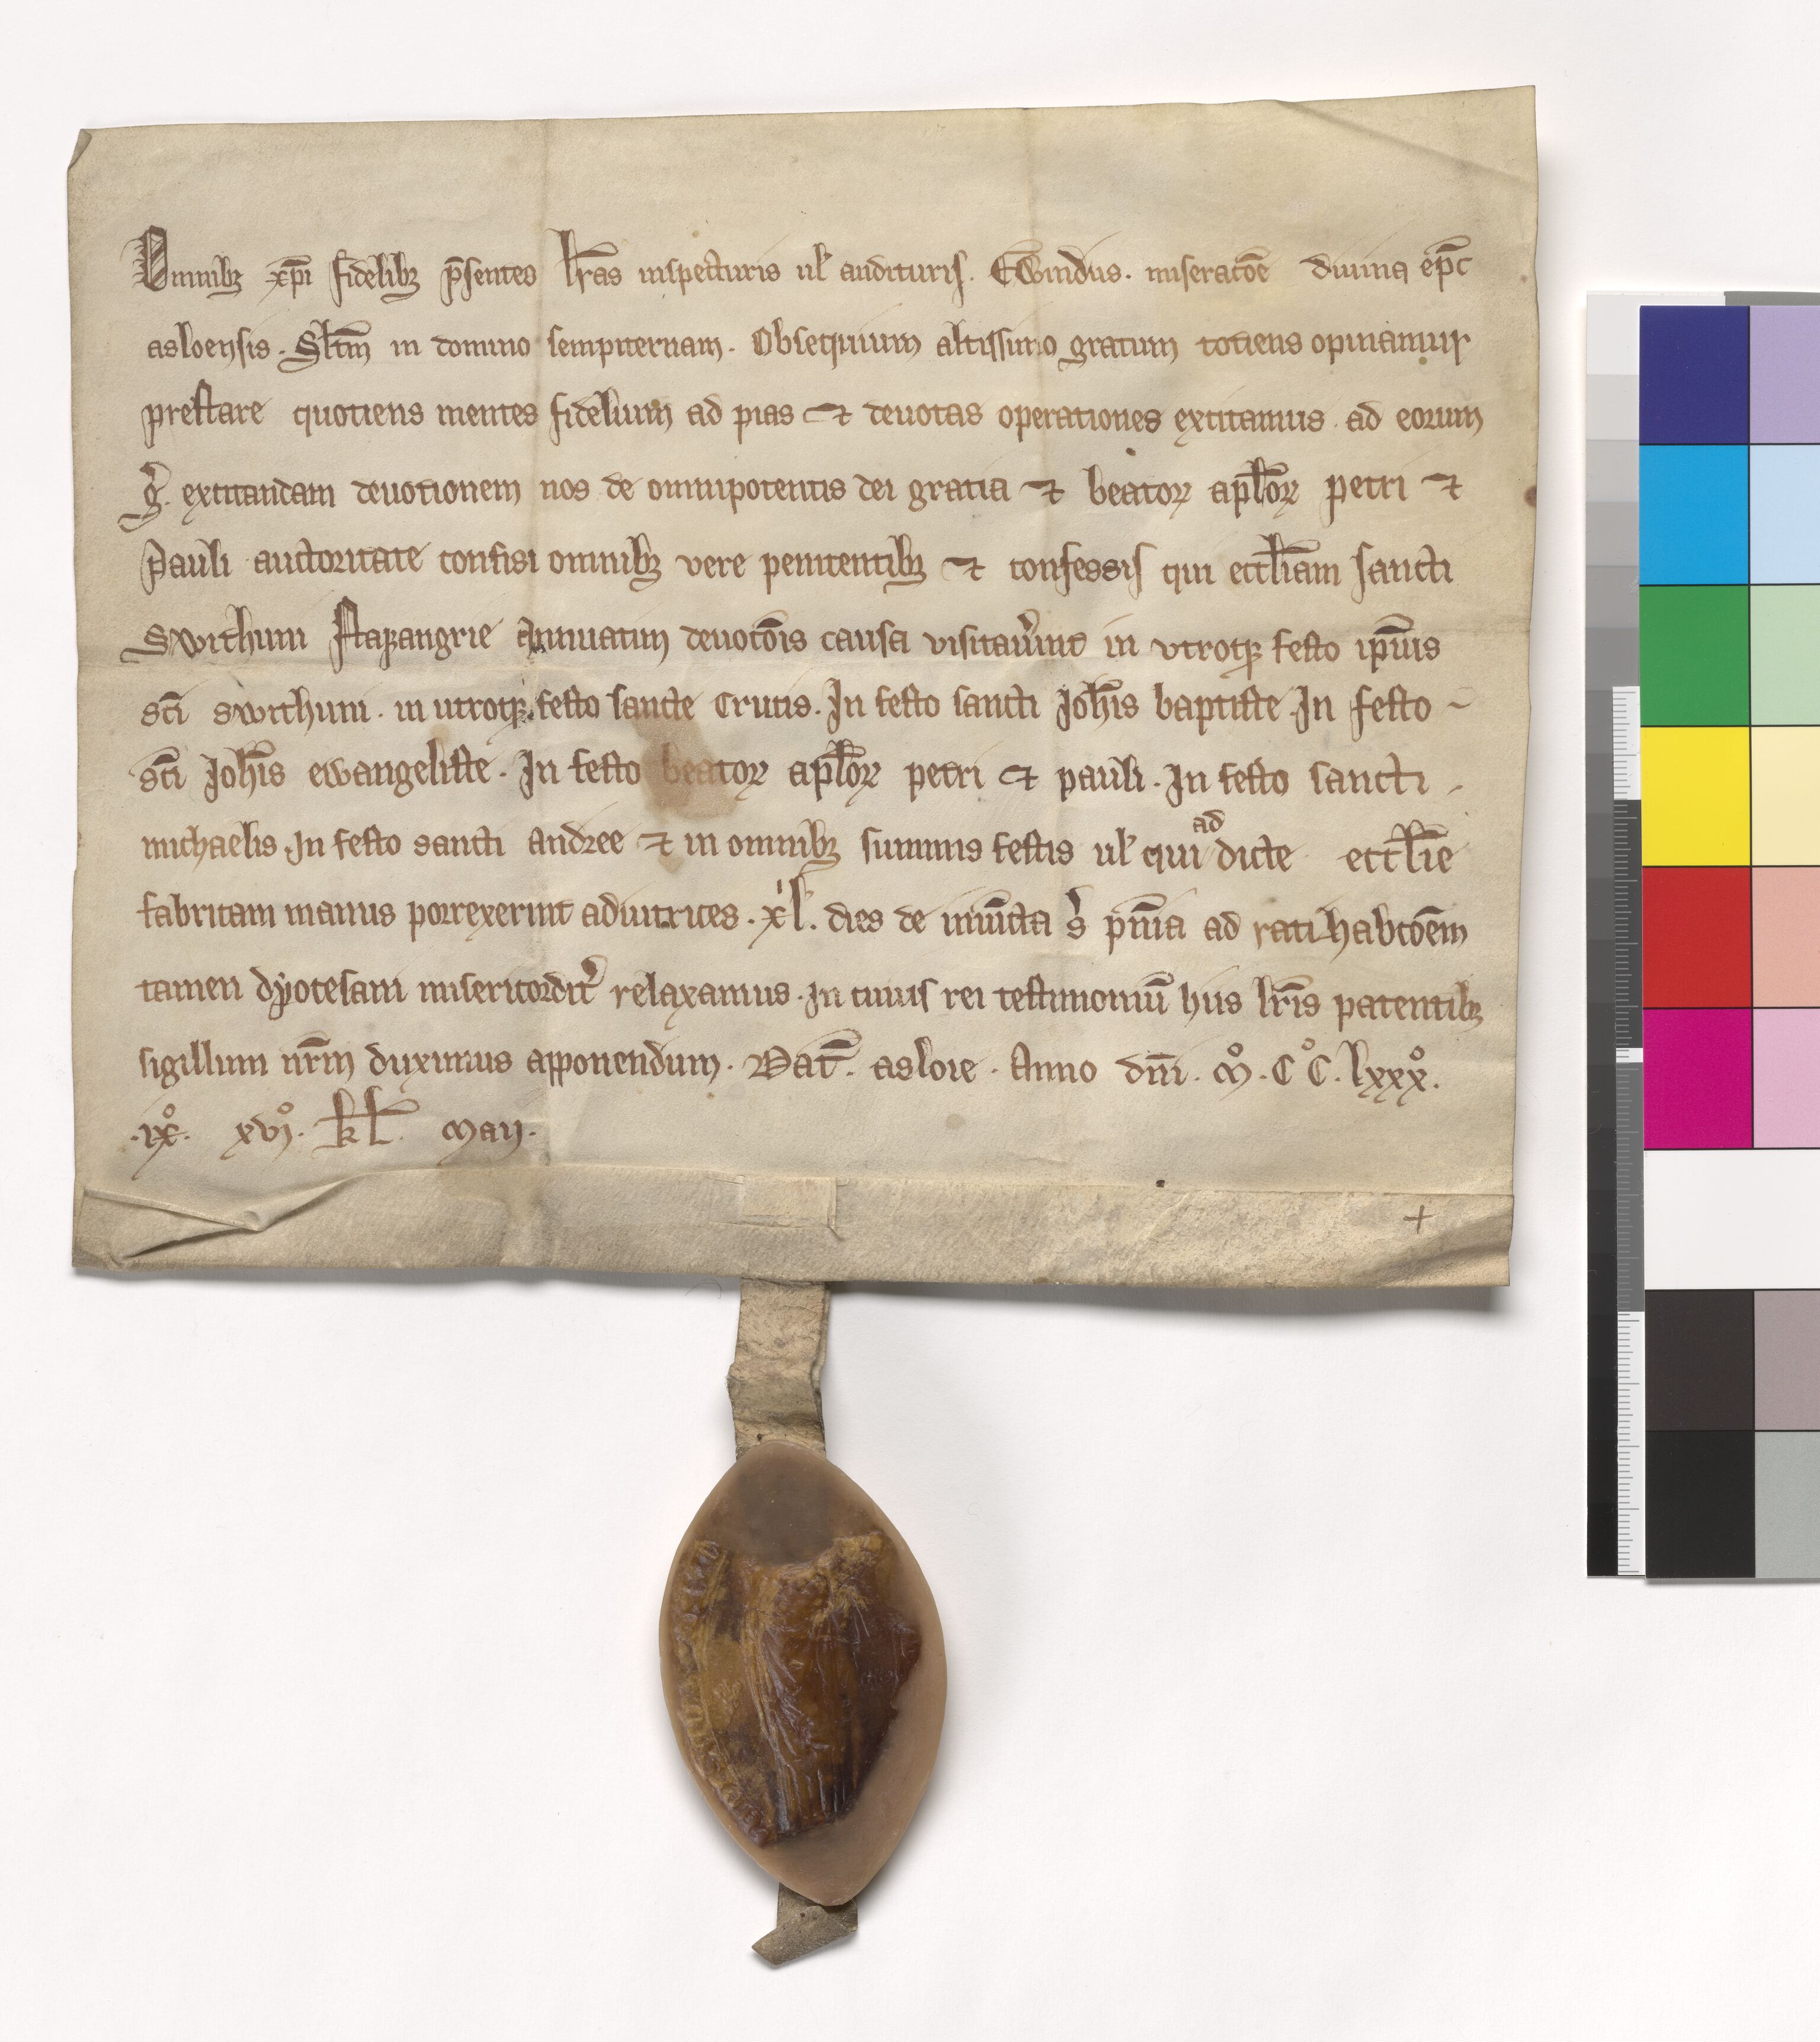 Omnibꝫ xp̄i fidelibꝫ p̄sentes lr̄as inspecturis ul̛ audituris. Ewindus. miseratōe diuina ep̄c
asloensis. Slt̄m in domino sempiternam. Obsequium altissimo gratum totiens opinamur
prestare quotiens mentes fidelium ad pias ⁊ deuotas operationes excitamus. ad eorum
g̊. excitandam deuotionem nos de omnipotentis dei gratia ⁊ beatoꝝ apl̄oꝝ petri ⁊
Pauli auctoritate confisi omnibꝫ vere penitentibꝫ ⁊ confessis qui eccl̄iam sancti
Swithuni Stawangrie Annuatim deuotōis causa visitaūint in vtroqꝫ festo ip̄ius
sc̄i swithuni. in utroqꝫ festo sancte Crucis. In festo sancti Joh̄is baptiste. In festo ~
sc̄i Joh̄is ewangeliste. In festo beatoꝝ apl̄oꝝ petri ⁊ pauli. In festo sancti -
michaelis. In festo sancti Andree ⁊ in omnibꝫ summis festis ul̛ qui ad dicte eccl̄ie
fabricam manus porrexerint adiutrices. xl. dies de iniūcta s̛ pn̄ia ad ratihabicōem
tamen dyocesani misericordit̛ relaxamus. In cuius rei testimoniū hiis lr̄is patentibꝫ
sigillum nr̄m duximus apponendum. Dat̄. asloie. Anno dn̄i. m̊. C̊C̊. lxxx̊.
.ix̊. xvj̊. kl̄. maij.
+